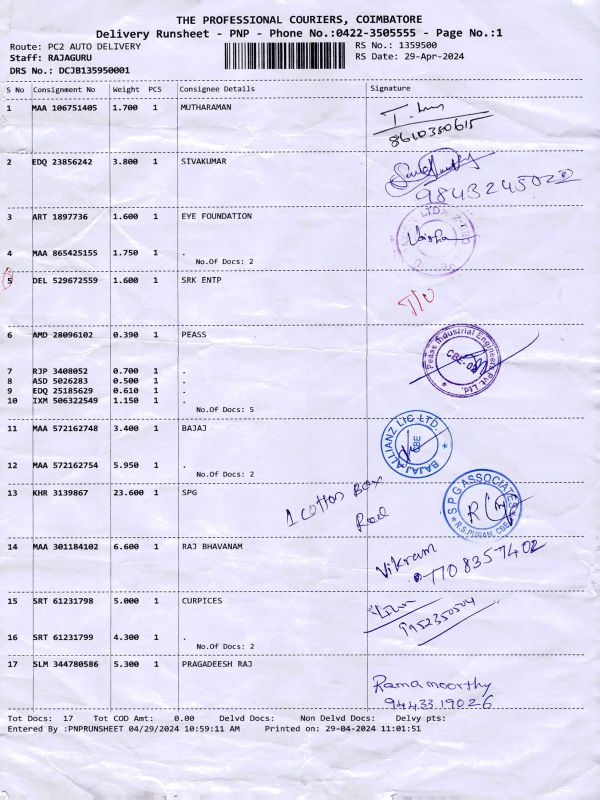 THE PROFESSIONAL COURIERS, COIMBATORE
Delivery Runsheet - PNP - Phone No.:0422-3505555 - Page No.:1
Route: PC2 AUTO DELIVERY
RS No.: 1359500
Staff: RAJAGURU
RS Date: 29-Apr-2024
DRS No.: DCJB135950001
S No Consignment No Weight PCS Consignee Details Signature
1 MAA 106751405 1.700 1 MUTHARAMAN
8610380615
2 EDQ 23856242 3.800 1 SIVAKUMAR
3 ART 1897736 1.600 1 EYE FOUNDATION
4 MAA 865425155 1.750 1 .
No.Of Docs: 2
5 DEL 529672559 1.600 1 SRK ENTP
6 AMD 28096102 0.390 1 PEASS
Peass Industrial Engineers Pvt. Ltd.
7 RJP 3408052 0.700 1 .
8 ASD 5026283 0.500 1 .
9 EDQ 25185629 0.610 1 .
10 IXM 506322549 1.150 1 .
No.Of Docs: 5
11 MAA 572162748 3.400 1 BAJAJ
BAJAJ ALLIANZ LIC LTD.
CBE
12 MAA 572162754 5.950 1 .
No.Of Docs: 2
13 KHR 3139867 23.600 1 SPG
1 Cotton Box
SPG ASSOCIATES
R.S.PURAM, CBE
14 MAA 301184102 6.600 1 RAJ BHAVANAM
Vikram
770 835 7402
15 SRT 61231798 5.000 1 CURPICES
9952350504
16 SRT 61231799 4.300 1 .
No.Of Docs: 2
17 SLM 344780586 5.300 1 PRAGADEESH RAJ
Ramamoorthy
9443319026
Tot Docs: 17 Tot COD Amt: 0.00 Delvd Docs: Non Delvd Docs: Delvy pts:
Entered By :PNPRUNSHEET 04/29/2024 10:59:11 AM Printed on: 29-04-2024 11:01:51